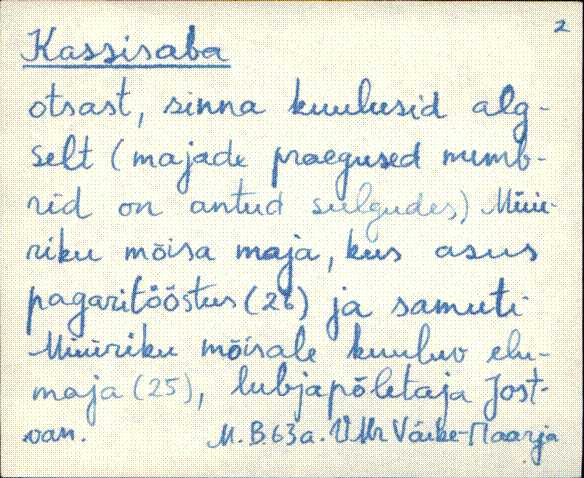 2
Kassisaba
otsast, sinna kuulusid alg-
selt (majade praegused numb-
rid on antud sulgudes) Müü-
riku mõisa maja, kus asus
pagaritööstus (26) ja samuti
Müüriku mõisale kuuluv elu-
maja (25), lubjapõletaja Jost-
van. M. B. 63a. VMr Väike-Maarja